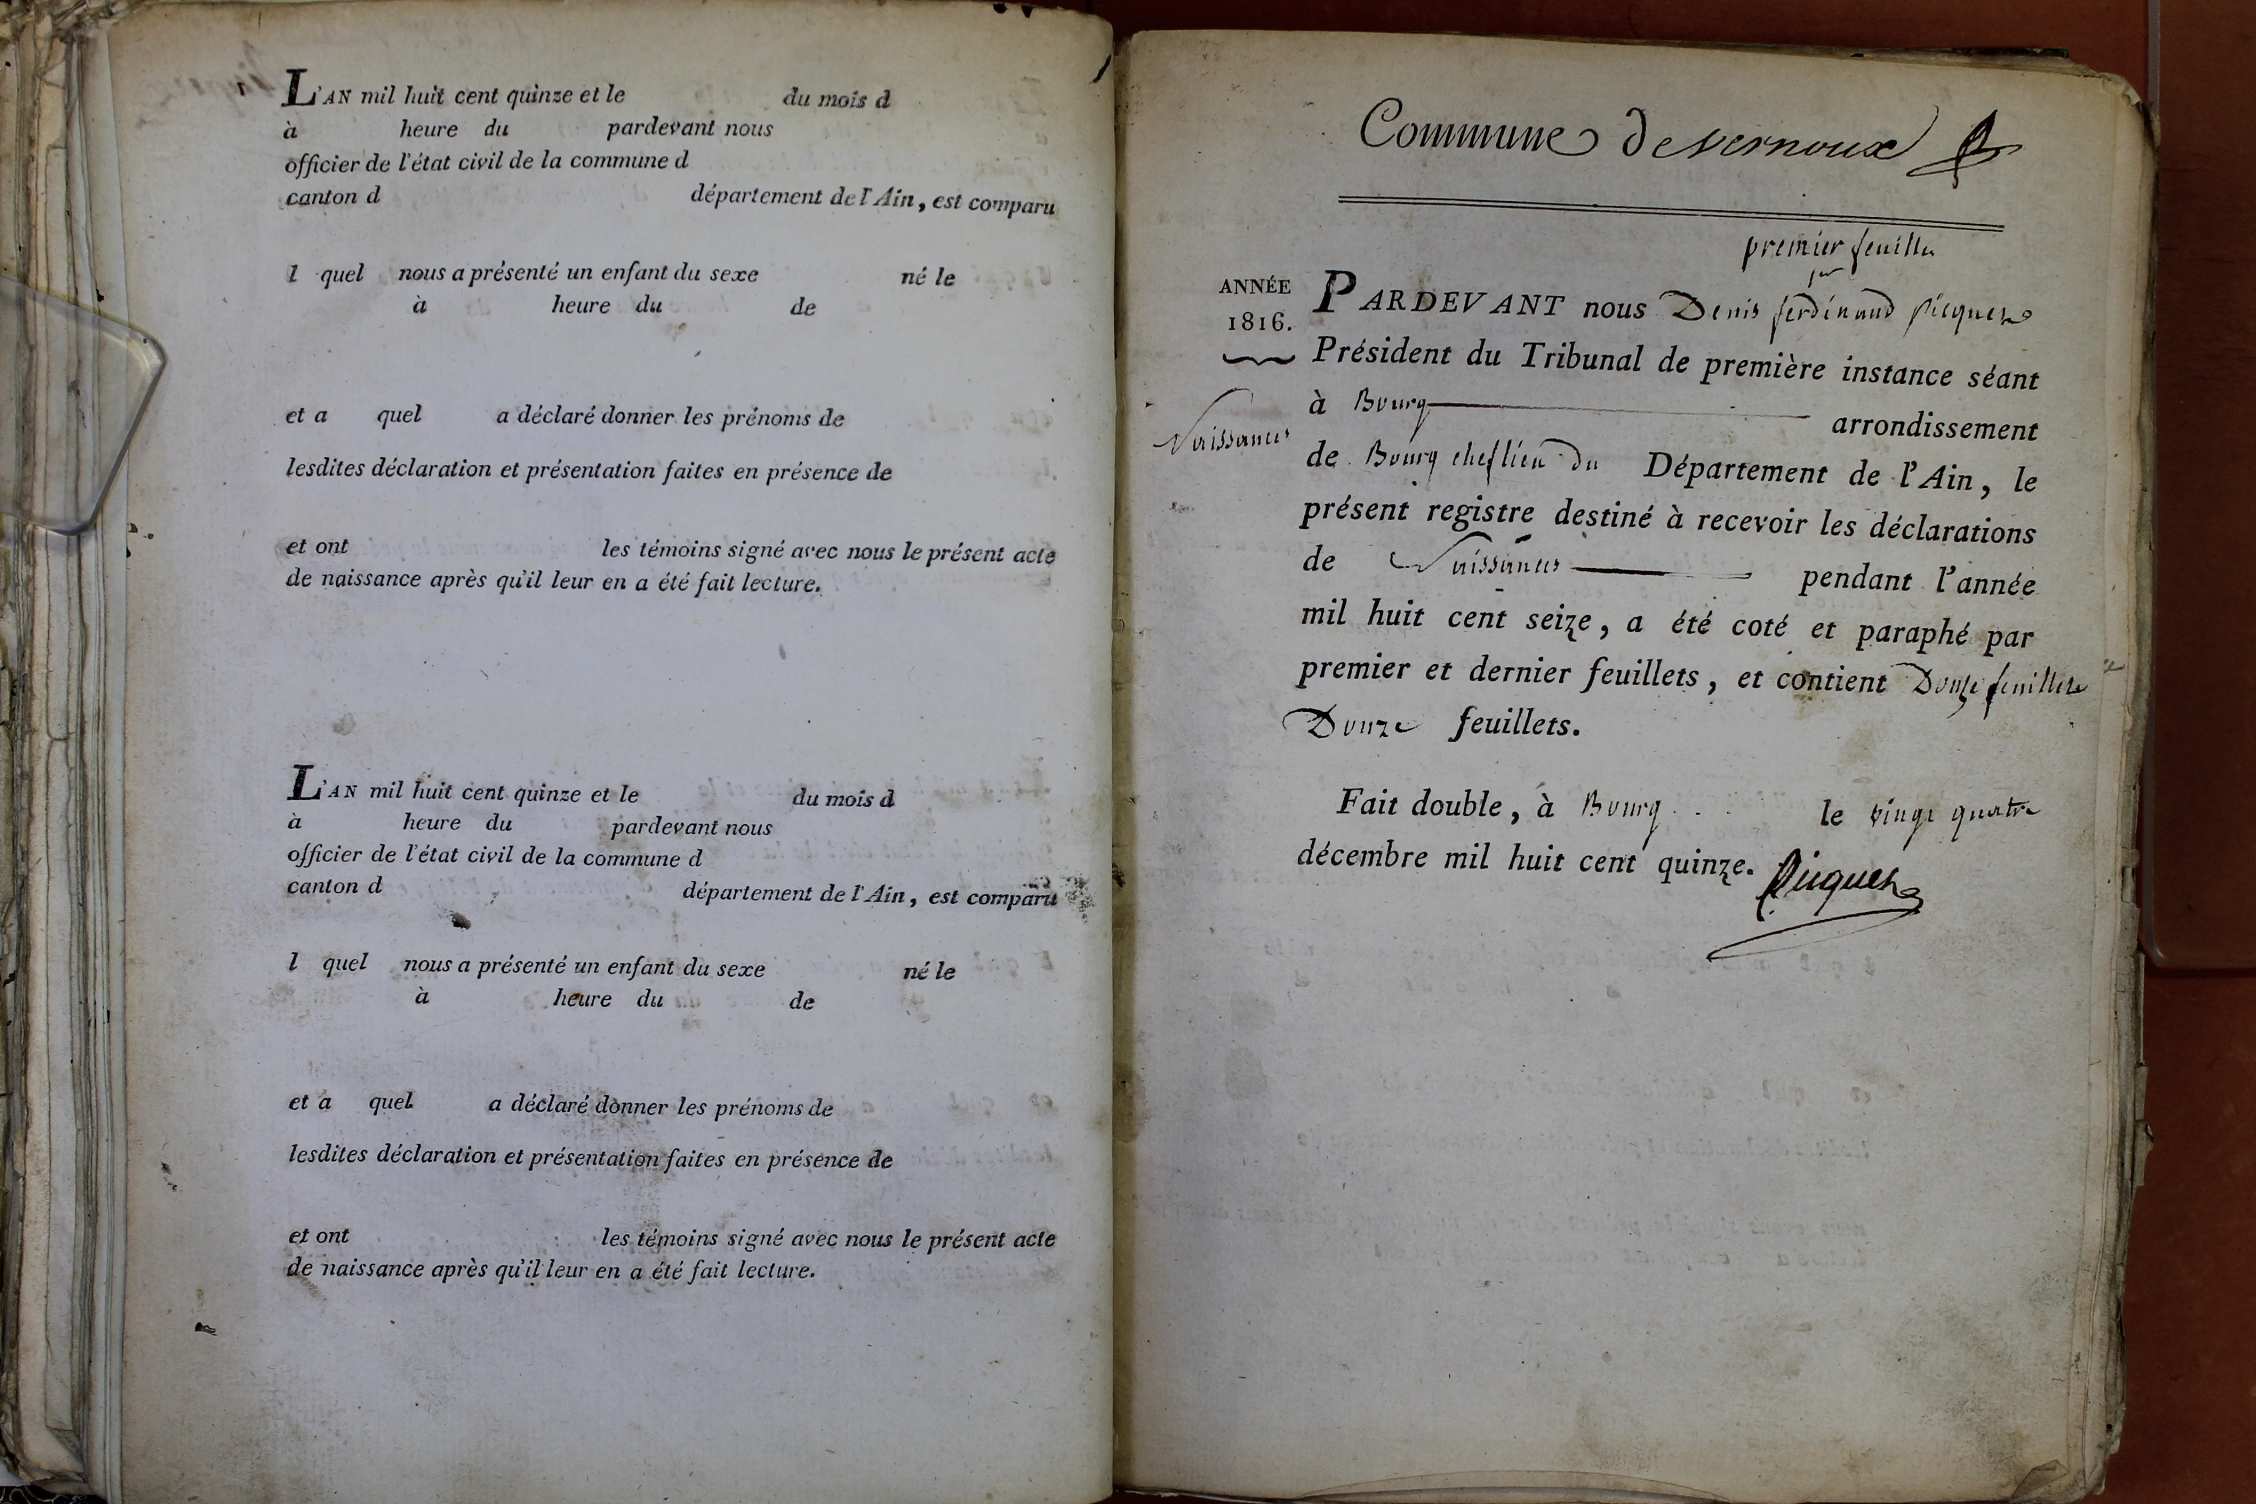 L'AN mil huit cent quinze et le du mois d
à heure du pardevant nous
officier de l'état civil de la commune d
canton d département de l'Ain, est comparu
l quel nous a présenté un enfant du sexe né le
à heure du de
et a quel a déclaré donner les prénoms de
lesdites déclaration et présentation faites en présence de
et ont les témoins signé avec nous le présent acte
de naissance après qu'il leur en a été fait lecture.
L'AN mil huit cent quinze et le du mois d
à heure du pardevant nous
officier de l'état civil de la commune d
canton d département de l'Ain, est comparu
l quel nous a présenté un enfant du sexe né le
à heure du de
et a quel a déclaré donner les prénoms de
lesdites déclaration et présentation faites en présence de
et ont les témoins signé avec nous le présent acte
de naissance après qu'il leur en a été fait lecture.
Commune de vernoux
premier feuillet
ANNÉE
1816.
Naissances
PARDEVANT nous Denis ferdinand Picquet
Président du Tribunal de première instance séant
à Bourg arrondissement
de Bourg cheflieu du Département de l'Ain, le
présent registre destiné à recevoir les déclarations
de Naissances pendant l'année
mil huit cent seize, a été coté et paraphé par
premier et dernier feuillets, et contient Douze feuillets
Douze feuillets.
Fait double, à Bourg le vingt quatre
décembre mil huit cent quinze.
Picquet